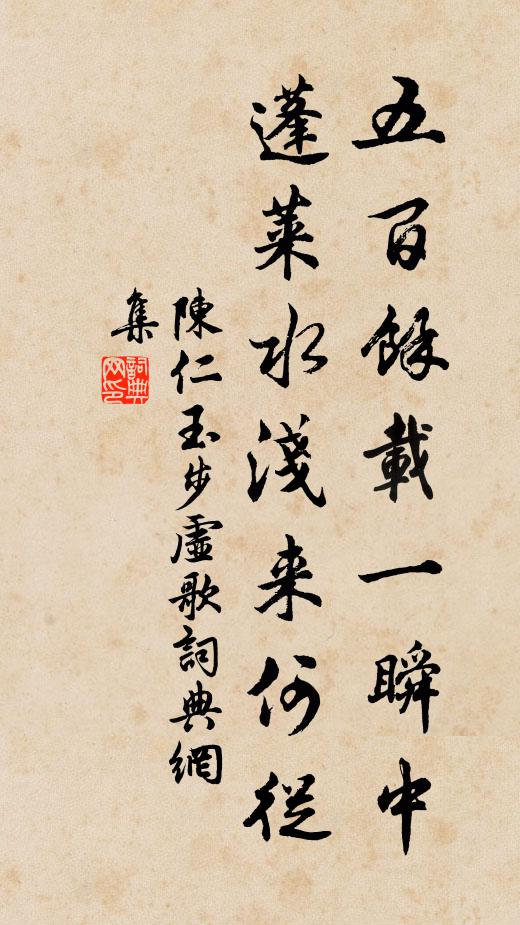 五百餘載一瞬中
蓬萊水淺来何從
陳仁玉步虛歌詞典網
集
詞典网印